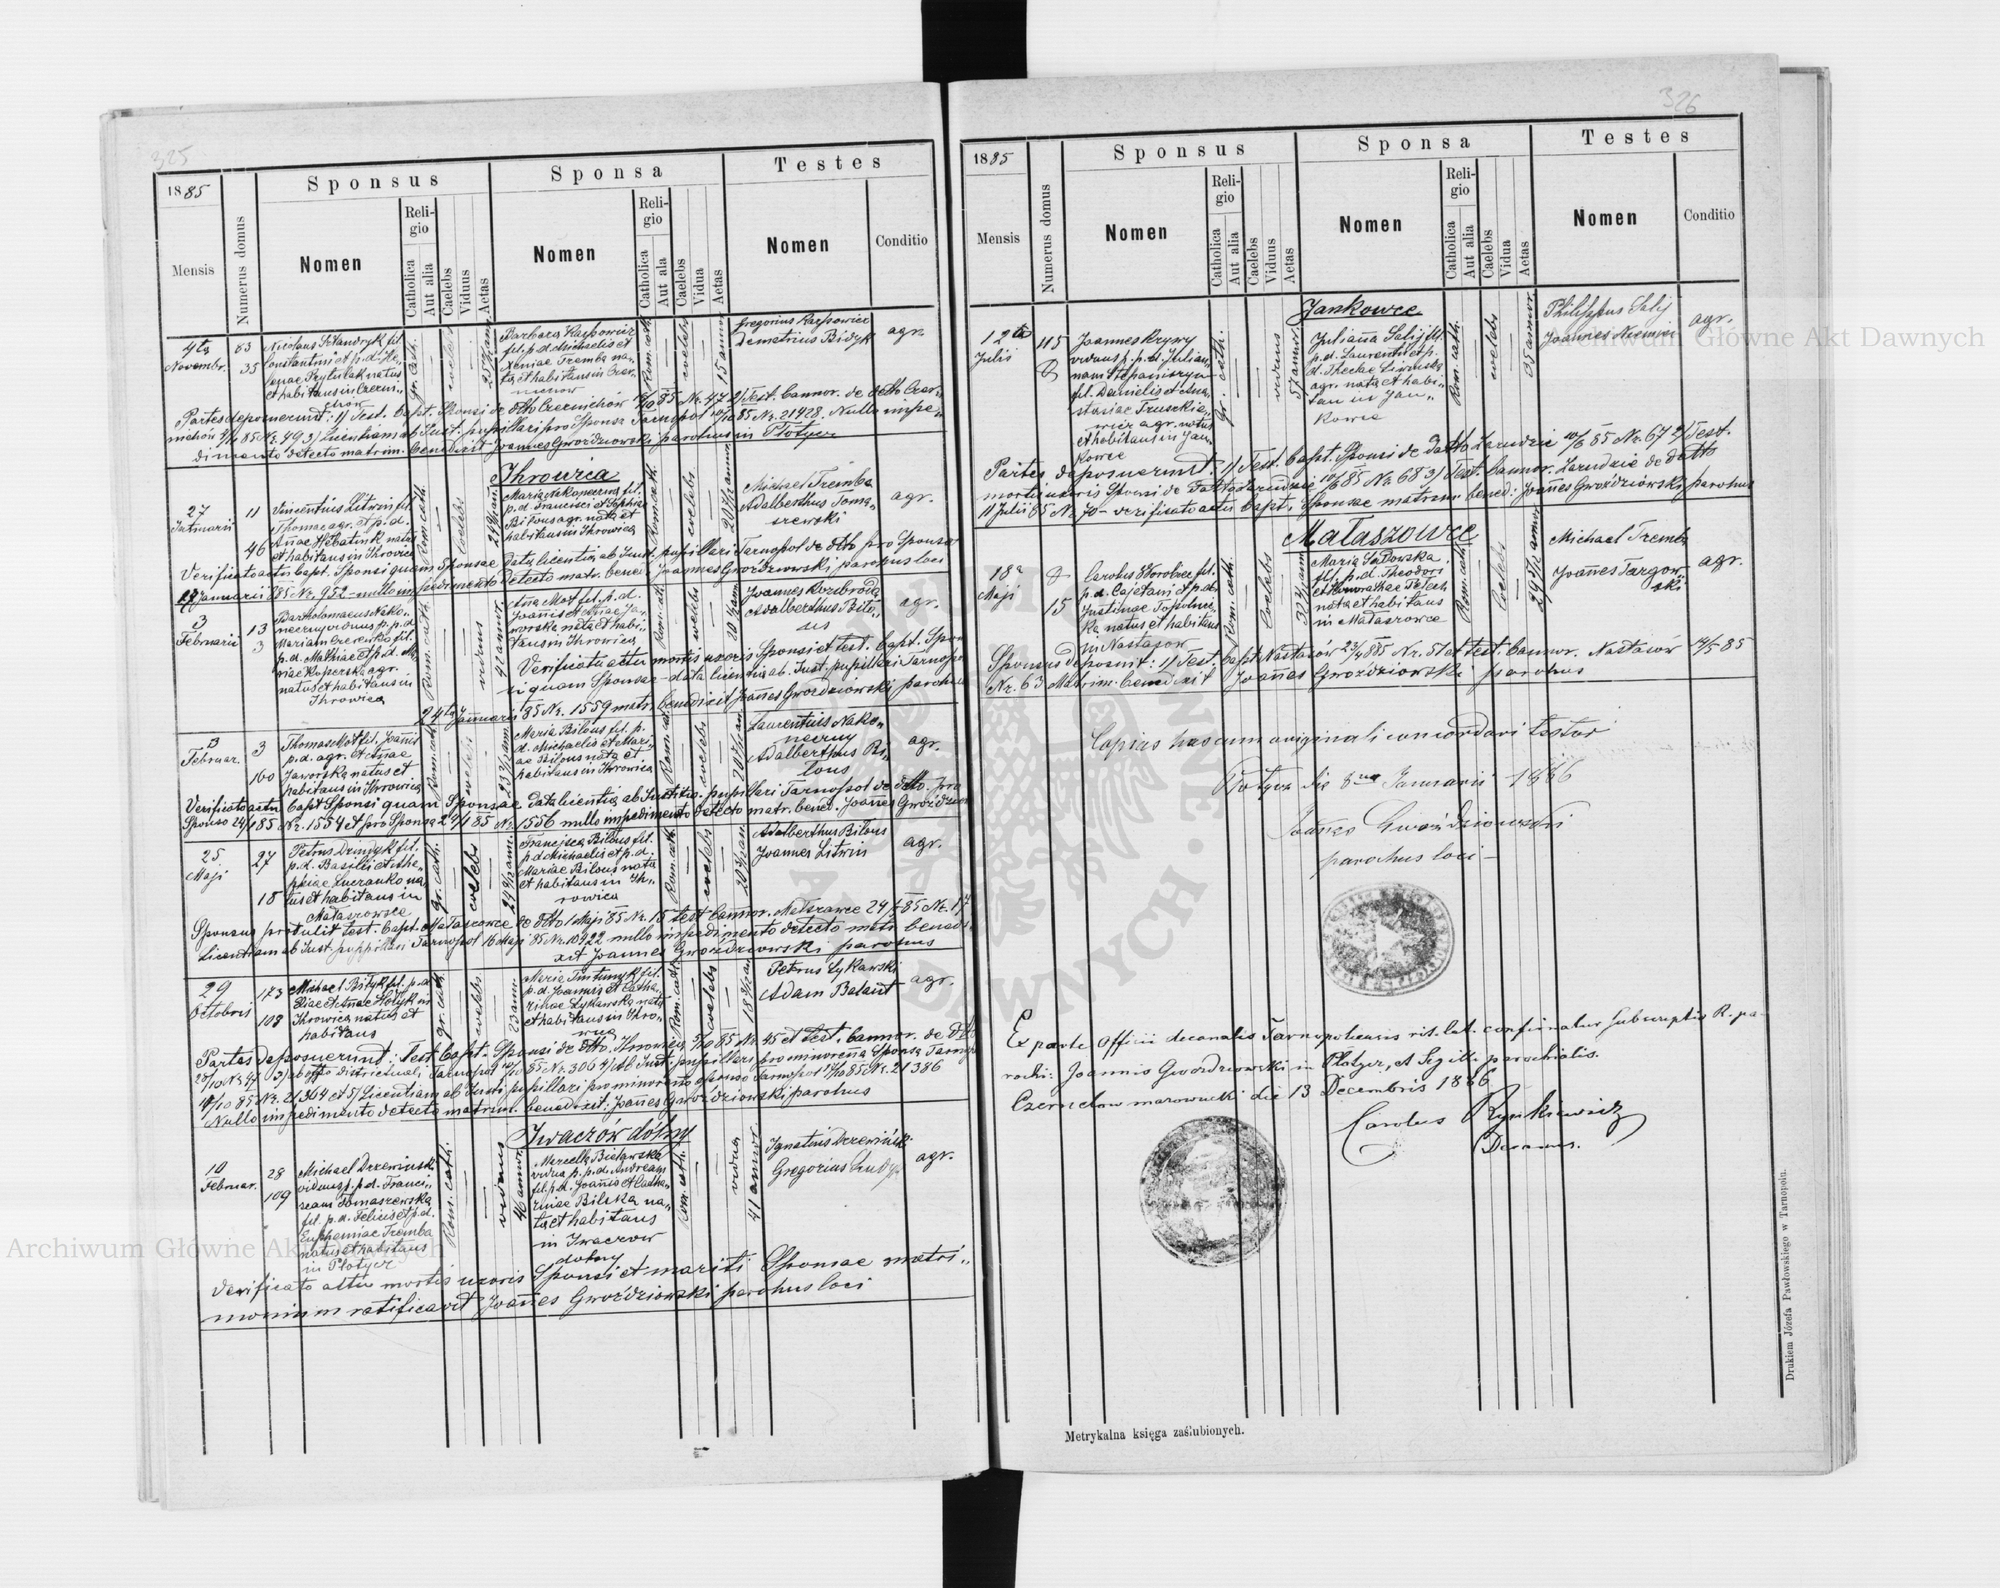 325
1885
Mensis
Numerus domus
Sponsus
Nomen
Reli-
gio
Catholica
Aut alia
Caelebs
Viduus
Aetas
Sponsa
Nomen
Reli-
gio
Catholica
Aut alia
Caelebs
Vidua
Aetas
Testes
Nomen
Conditio
4ta
Novembr.
63
35
Nicolaus Szkandryk fil.
Constantini et p.d. He-
lenae Prytulak natus
et habitans in Czerni-
chów
gr. cath.
caelebs
Barbara Karpowicz
fil. p.d. Michaelis et
Xeniae Tremba na-
ta et habitans in Czer-
nichów
Rom. cath.
caelebs
Gregorius Karpowicz
Demetrius Bidyk
agr.
Partes deposuerunt: 1) Test. bapt. Sponsi de dtto Czernichów 85 Nr. 47 2) Test. bannor. de dtto Czer-
nichów 85 Nr. 49 3) Licentiam ab Inst. pupillari pro Sponsa Tarnopol 85 Nr. 21428. Nullo impe-
dimento detecto matrim. benedixit Joannes Gwoździowski parochus in Płotycz
Ihrowica
27
Januarii
11
46
Vincentius Litwin fil.
Thomae agr. et p.d.
Annae Hebatiuk natus
et habitans in Ihrowica
Rom. cath.
caelebs
Maria Nakoneczna fil.
p.d. Francisci et Sophiae
Bilous agr. nata et
habitans in Ihrowica
Rom. cath.
caelebs
Michael Tremba
Adalberthus Toma-
szewski
agr.
Verificato actu bapt. Sponsi quam Sponsae data licentia ab Inst. pupillari Tarnopol de dtto pro Sponsa
27 Januarii 885 Nr. 952 - nullo impedimento detecto matr. bened. Joannes Gwoździowski parochus loci
3
Februarii
13
3
Bartholomaeus Nako-
neczny viduus p. p.d.
Mariam Czereńko fil.
p.d. Mathiae et p.d. Ma-
riae Koperska agr.
natus et habitans in
Ihrowica
Rom. cath.
viduus
42 annor.
Anna Mot fil. p.d.
Joannis et Annae Ja-
worska nata et habi-
tans in Ihrowica
Rom. cath.
caelebs
Joannes Rozbroda
Adalberthus Bilo-
us
agr.
Verificatu actu mortis uxoris Sponsi et test. bapt. Spon-
si quam Sponsae - data licentia ab Inst. pupillari Tarnopol
24ta Januarii 85 Nr. 1559 matr. benedixit Joannes Gwoździowski parochus
3
Februar.
3
160
Thomas Mot fil. Joannis
p.d. agr. et Annae
Jaworska natus et
habitans in Ihrowica
Rom. cath.
caelebs
Maria Bilous fil. p.
d. Michaelis et Mari-
ae Bilous nata et
habitans in Ihrowica
Rom. cath.
caelebs
Laurentius Nako-
neczny
Adalberthus Bi-
lous
agr.
Verificato actu bapt. Sponsi quam Sponsae data licentia ab Institu. pupillari Tarnopol de dtto pro
Sponso 24/1 85 Nr. 1554 et pro Sponsa 24/1 85 Nr. 1556 nullo impedimento detecto matr. bened. Joannes Gwoździow
25
Maji
27
18
Petrus Dzindyk fil.
p.d. Basilii et
Luczanko na-
tus et habitans in
Mataszowce
gr. cath.
caelebs
Francisca Bilous fil.
p.d. Michaelis et p.d.
Mariae Bilous nata
et habitans in Ih-
rowica
Rom. cath.
caelebs
Adalberthus Bilous
Joannes Litwin
agr.
Sponsus protulit test. bapt. Mataszowce de dtto 1 Maji 85 Nr. 15 test. bannor. Mataszowce 24/5 85 Nr. 17
Licentiam ab Inst. pupillari Tarnopol 16 Maji 85 Nr. 10922 nullo impedimento detecto matr. bened-
ixit Joannes Gwoździowski parochus
29
Octobris
173
108
Michael Bidyk fil. p.d.
Eliae et Annae Hołyk in
Ihrowica natus et
habitans
gr. cath.
caelebs
23 ann.
Maria Tmtunyk fil.
p.d. Joannis et Catha-
rinae Łykawska nata
et habitans in Ihro-
wica
Rom. cath.
caelebs
Petrus Łykawski
Adam Balant
agr.
Partes deposuerunt: Test. bapt. Sponsi de dtto. Ihrowica 85 Nr. 45 et test. bannor. de dtto
Nr. 47 3) ab offo districtuali Tarnopol 85 Nr. 306 4) ab Inst. pupillari pro minorenna Sponsa Tarnopol
85 Nr. 21304 et 5) Licentiam ab Insti. pupillari pro minorenno sponso Tarnopol 85 Nr. 21386
Nullo impedimento detecto matrim. benedixit: Joannes Gwoździowski parochus
Iwaczów dolny
10
Februar.
28
109
Michael Drzewiński
viduus p. p.d. Franci-
scam Tomaszewska
fil. p.d. Felicis et p.d.
Euphemiae Tremba
natus et habitans
in Płotycz
Rom. cath.
viduus
46 annor.
Marcella Bielawska
vidua p. p.d. Andream
fil. p.d. Joannis et Catha-
rinae Bilska na-
ta et habitans
in Iwaczow
dolny
Rom. cath.
vidua
41 annor.
Ignatius Drzewiński
Gregorius
agr.
Verificato actu mortis uxoris Sponsi et mariti Sponsae matri-
monium ratificavit Joannes Gwoździowski parochus loci
326
1885
Mensis
Numerus domus
Sponsus
Nomen
Reli-
gio
Catholica
Aut alia
Caelebs
Viduus
Aetas
Sponsa
Nomen
Reli-
gio
Catholica
Aut alia
Caelebs
Vidua
Aetas
Testes
Nomen
Conditio
Jankowce
12ta
Julii
115
Joannes Krywy
viduus p. p.d. Julian-
nam Stepaniszyn
fil. Danielis et Ana-
stasiae Truszkie-
wicz agr. natus
et habitans in Jan-
kowce
gr. cath.
viduus
57 annor.
Julianna Salij fil.
p.d. Laurentii et p.
d. Theclae Liwińska
agr. nata et habi-
tan in Jan-
kowce
Rom. cath.
caelebs
35 annor.
Philippus Salij
Joannes
agr.
Partes deposuerunt: 1) Test. bapt. Sponsi de datto Zarudzie 85 Nr. 67 2) Test.
mortis uxoris Sponsi de datto Zarudzie 85 Nr. 68 3) Test. bannor. Zarudzie de datto
11 Julii 85 Nr. 70 - verificato actu bapt. Sponsae matrim. bened: Joannes Gwoździowski parochus
Mataszowce
18a
Maji
15
Carolus Worobec fil.
p.d. Cajetani et p.d.
Justinae Topolnic-
ka natus et habitans
in Nastasow
Rom. cath.
caelebs
Maria Sadowska
fil. p.d. Theodori
et Honorathae
nata et habitans
in Mataszowce
Rom. cath.
caelebs
Michael Tremba
Joannes Targow-
ski
agr.
Sponsus deposuit: 1) Test. bapt. Nastasów 885 Nr. 51 et test. bannor. Nastasów 14/5 85
Nr. 63 Matrim. benedixit Joannes Gwoździowski parochus
Copias has cum originali concordari testor
Płotycz die 8va Januarii 1886
Joannes Gwoździowski
parochus loci
Ex parte Officii decanalis Tarnopoliensis rit. lat. confirmatur subscriptio R. pa-
rochi: Joannis Gwoździowski in Płotycz, et Sigilli parochialis.
Czernelow mazowiecki die 13 Decembris 1886
Carolus Rynkiewicz
Decanus.
Metrykalna księga zaślubionych.
Drukiem Józefa Pawłowskiego w Tarnopolu.
Archiwum Główne Akt Dawnych
Archiwum Główne Akt Dawnych